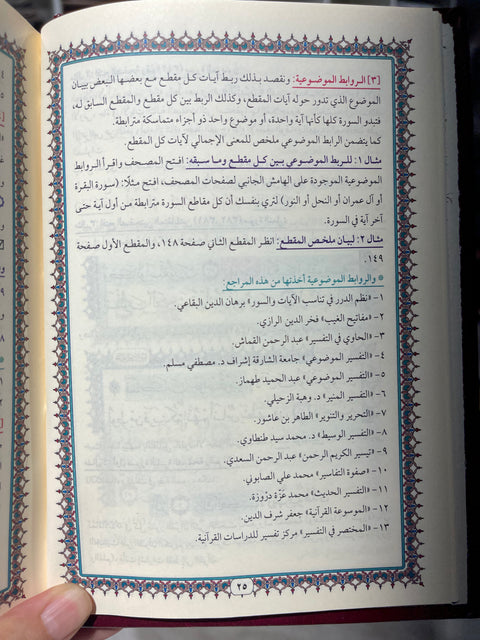 [٣] الروابط الموضوعية: ونقصد بذلك ربط آيات كل مقطع مع بعضها البعض ببيان
الموضوع الذي تدور حوله آيات المقطع، وكذلك الربط بين كل مقطع والمقطع السابق له،
فتبدو السورة كلها كأنها آية واحدة، أو موضوع واحد ذو أجزاء متماسكة مترابطة.
كما يتضمن الرابط الموضوعي ملخص للمعنى الإجمالي لآيات كل المقطع.
مثال ١: للربط الموضوعي بين كل مقطع وما سبقه: افتح المصحف واقرأ الروابط
الموضوعية الموجودة على الهامش الجانبي لصفحات المصحف، افتح مثلًا: (سورة البقرة
أو آل عمران أو النحل أو النور) لترى بنفسك أن كل مقاطع سورة مترابطة من أول آية حتى
آخر آية في السورة.
مثال ٢: لبيان ملخص المقطع: انظر المقطع الثاني صفحة ١٤٨، والمقطع الأول صفحة
١٤٩.
* والروابط الموضوعية أخذتها من هذه المراجع:
١- «نظم الدرر في تناسب الآيات والسور» برهان الدين البقاعي.
٢- «مفاتيح الغيب» فخر الدين الرازي.
٣- «الحاوي في التفسير» عبد الرحمن القماش.
٤- «التفسير الموضوعي» جامعة الشارقة إشراف د. مصطفي مسلم.
٥- «التفسير الموضوعي» عبد الحميد طهماز.
٦- «التفسير المنير» د. وهبة الزحيلي.
٧- «التحرير والتنوير» الطاهر بن عاشور.
٨- «التفسير الوسيط» د. محمد سيد طنطاوي.
٩- «تيسير الكريم الرحمن» عبد الرحمن السعدي.
١٠- «صفوة التفاسير» محمد علي الصابوني.
١١- «التفسير الحديث» محمد عَزّة دَرْوَزة.
١٢- «الموسوعة القرآنية» جعفر شرف الدين.
١٣- «المختصر في التفسير» مركز تفسير للدراسات القرآنية.
٢٥